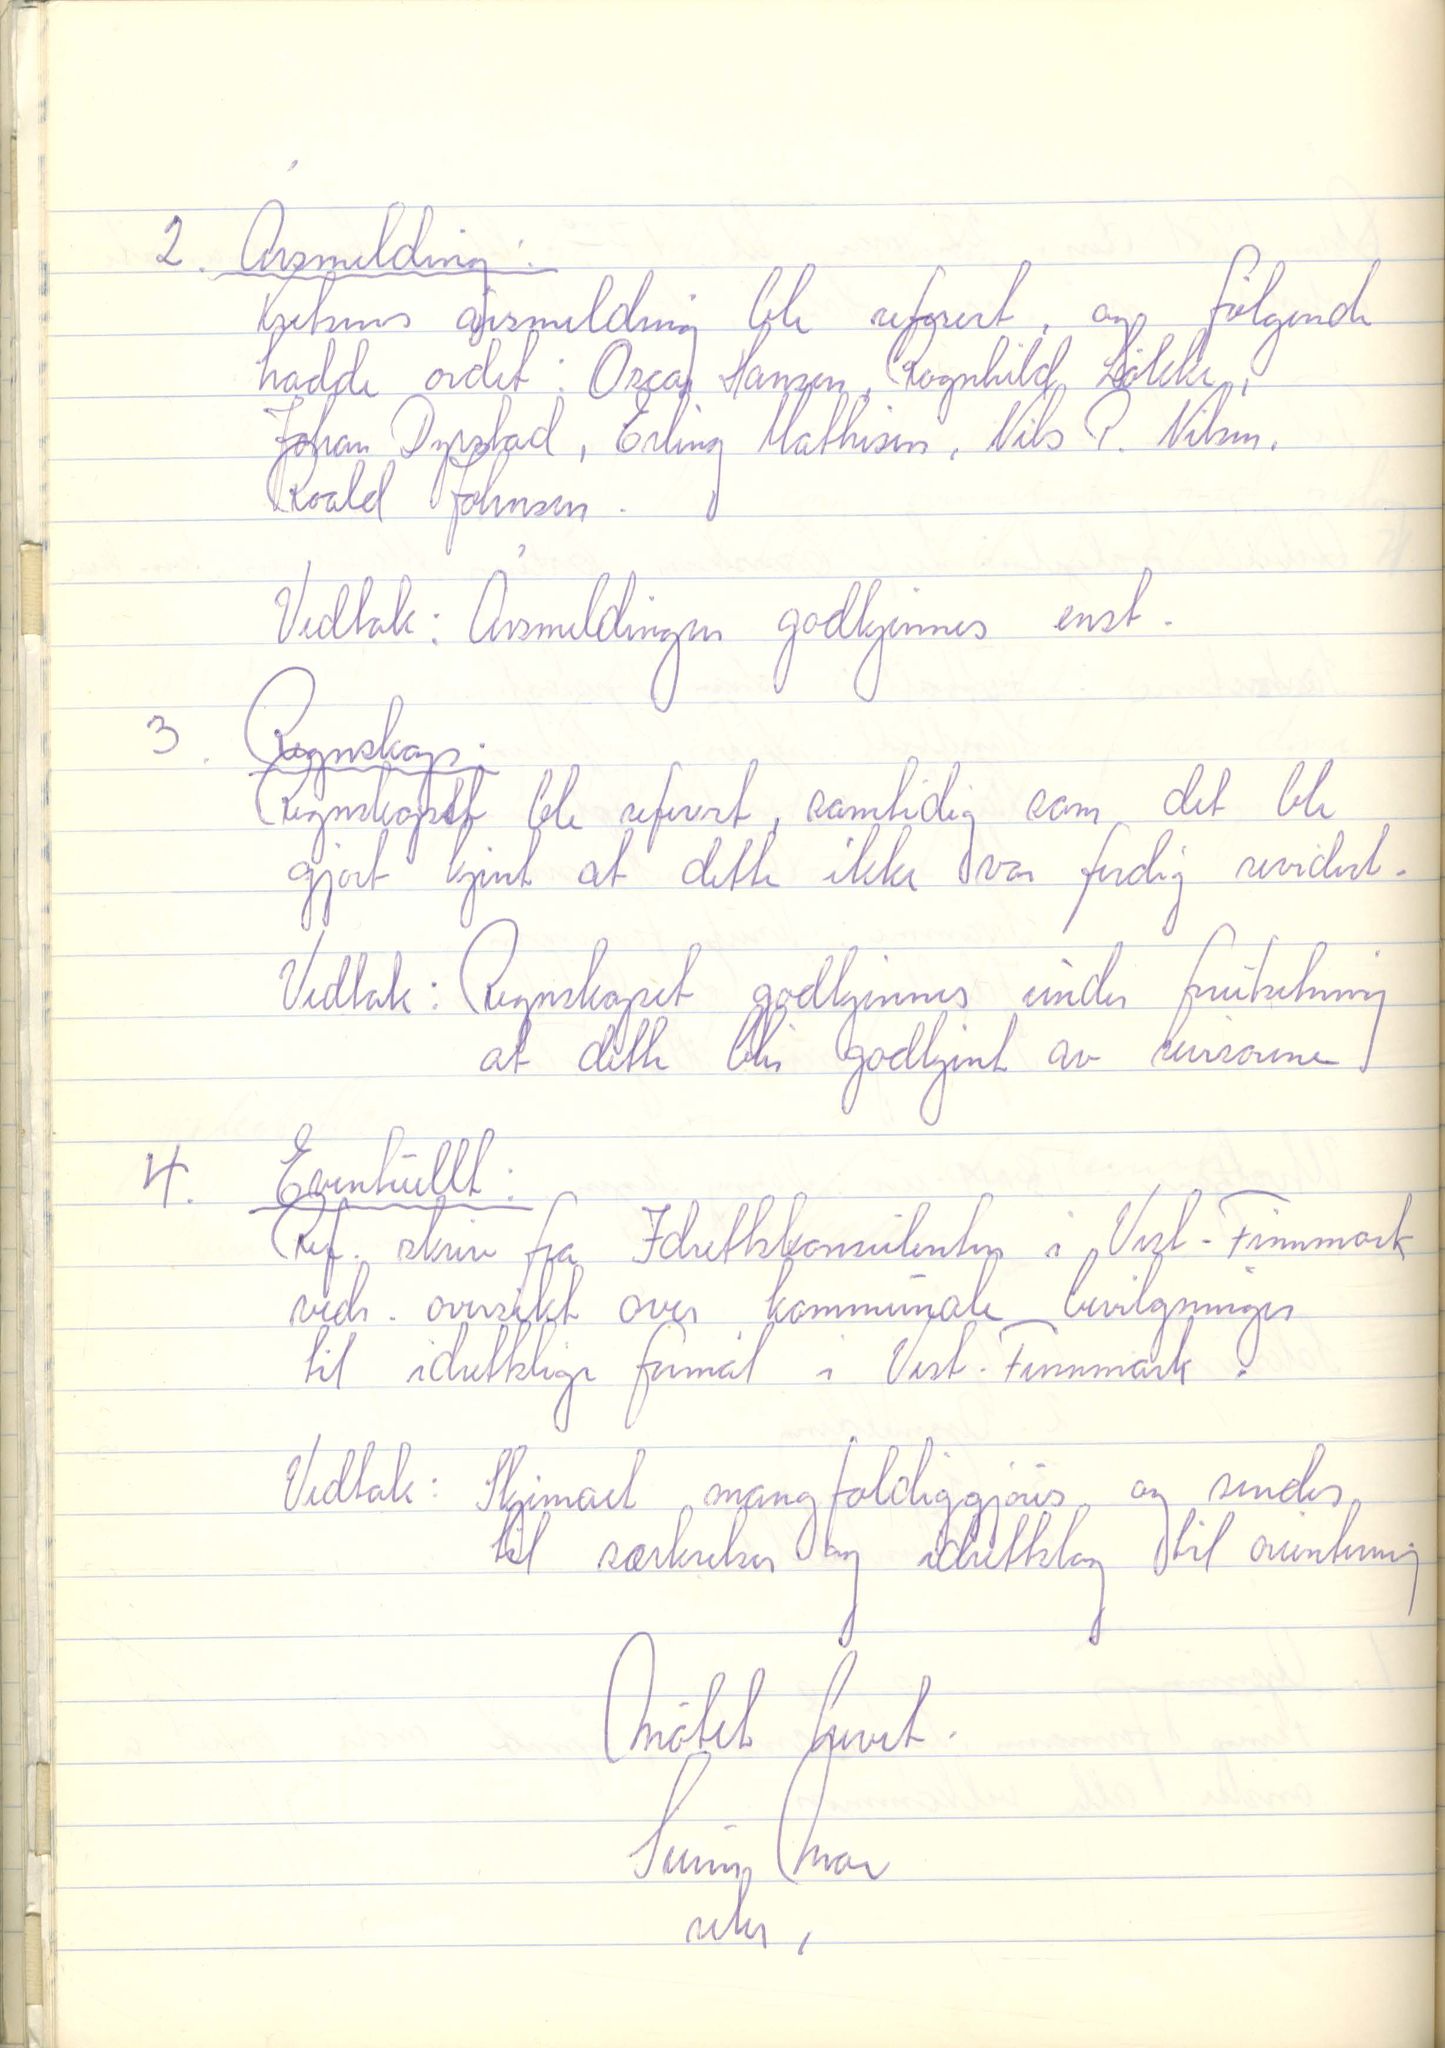 2. Årsmelding:
Kretsens årsmelding ble referert, og følgende
hadde ordet: Oscar Hansen, Ragnhild Løkke,
Johan Dyrstad, Erling Mathisen, Nils P. Nilsen,
Roald Johnsen.
Vedtak: Årsmeldingen godkjennes enst.
3. Regnskap:
Regnskapet ble referert, samtidig som det ble
gjort kjent at dette ikke var ferdig revidert.
Vedtak: Regnskapet godkjennes under forutsetning
at dette blir godkjent av revisorene
4. Eventuellt:
Ref. skriv fra Idrettskonsulenten i Vest-Finnmark
vedr. oversikt over kommunale bevilgninger
til idrettslige formål i Vest-Finnmark.
Vedtak: Skjemaet mangfoldiggjøres og sendes
til særkretser og idrettslag til orientering
Møtet hevet.
sekr,